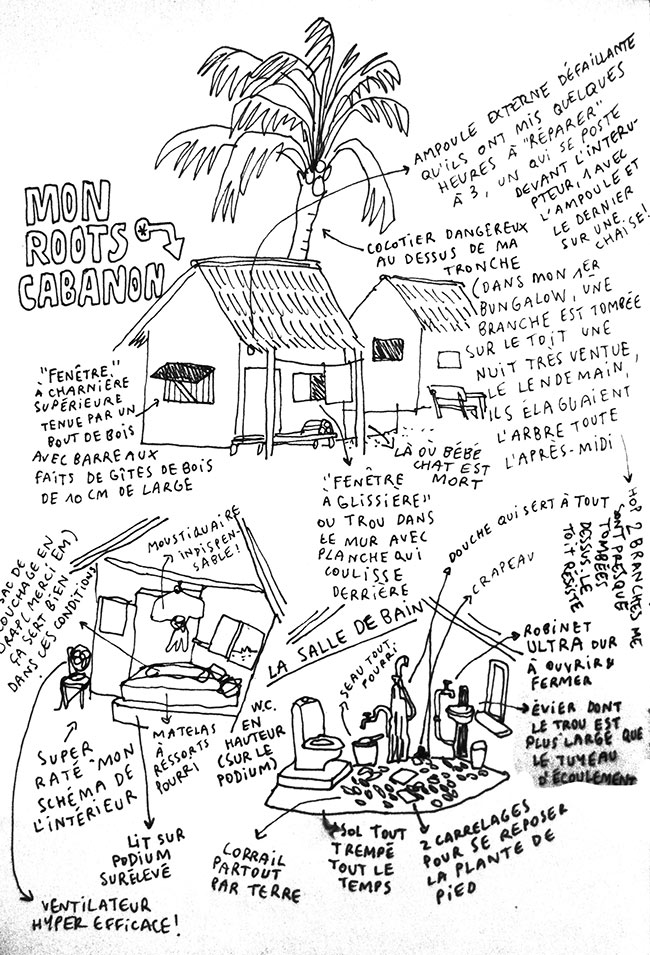 MON
ROOTS
CABANON
*
AMPOULE EXTERNE DÉFAILLANTE
QU'ILS ONT MIS QUELQUES
HEURES À "RÉPARER"
À 3, UN QUI SE POSTE
DEVANT L'INTERU-
PTEUR, 1 AVEC
L'AMPOULE ET
LE DERNIER
SUR UNE
CHAISE!
COCOTIER DANGEREUX
AU DESSUS DE MA
TRONCHE
(DANS MON 1ER
BUNGALOW, UNE
BRANCHE EST TOMBÉE
SUR LE TOIT UNE
NUIT TRÈS VENTUE,
LE LENDEMAIN,
ILS ÉLAGUAIENT
L'ARBRE TOUTE
L'APRÈS-MIDI
HOP 2 BRANCHES ME
SONT PRESQUE
TOMBÉES
DESSUS. LE
TOIT RÉSISTE
"FENÊTRE"
À CHARNIÈRE
SUPÉRIEURE
TENUE PAR UN
BOUT DE BOIS
AVEC BARREAUX
FAITS DE GÎTES DE BOIS
DE 10 CM DE LARGE
"FENÊTRE
À GLISSIÈRE"
OU TROU DANS
LE MUR AVEC
PLANCHE QUI
COULISSE
DERRIÈRE
LÀ OÙ BÉBÉ
CHAT EST
MORT
SAC DE
COUCHAGE EN
CRAP (MERCI EM)
ÇA SERT BIEN
DANS LES CONDITIONS
MOUSTIQUAIRE
INDISPEN-
SABLE!
SUPER
RATÉ "MON
SCHÉMA DE
L'INTÉRIEUR
MATELAS
À
RESSORTS
POURRI
LIT SUR
PODIUM
SURÉLEVÉ
VENTILATEUR
HYPER EFFICACE!
LA SALLE DE BAIN
W.C.
EN
HAUTEUR
(SUR LE
PODIUM)
SEAU TOUT
POURRI
DOUCHE QUI SERT À TOUT
CRAPEAU
ROBINET
ULTRA DUR
À OUVRIR &
FERMER
ÉVIER DONT
LE TROU EST
PLUS LARGE QUE
LE TUYEAU
D'ÉCOULEMENT
CORRAIL
PARTOUT
PAR TERRE
SOL TOUT
TREMPÉ
TOUT LE
TEMPS
2 CARRELAGES
POUR SE REPOSER
LA PLANTE DE
PIED